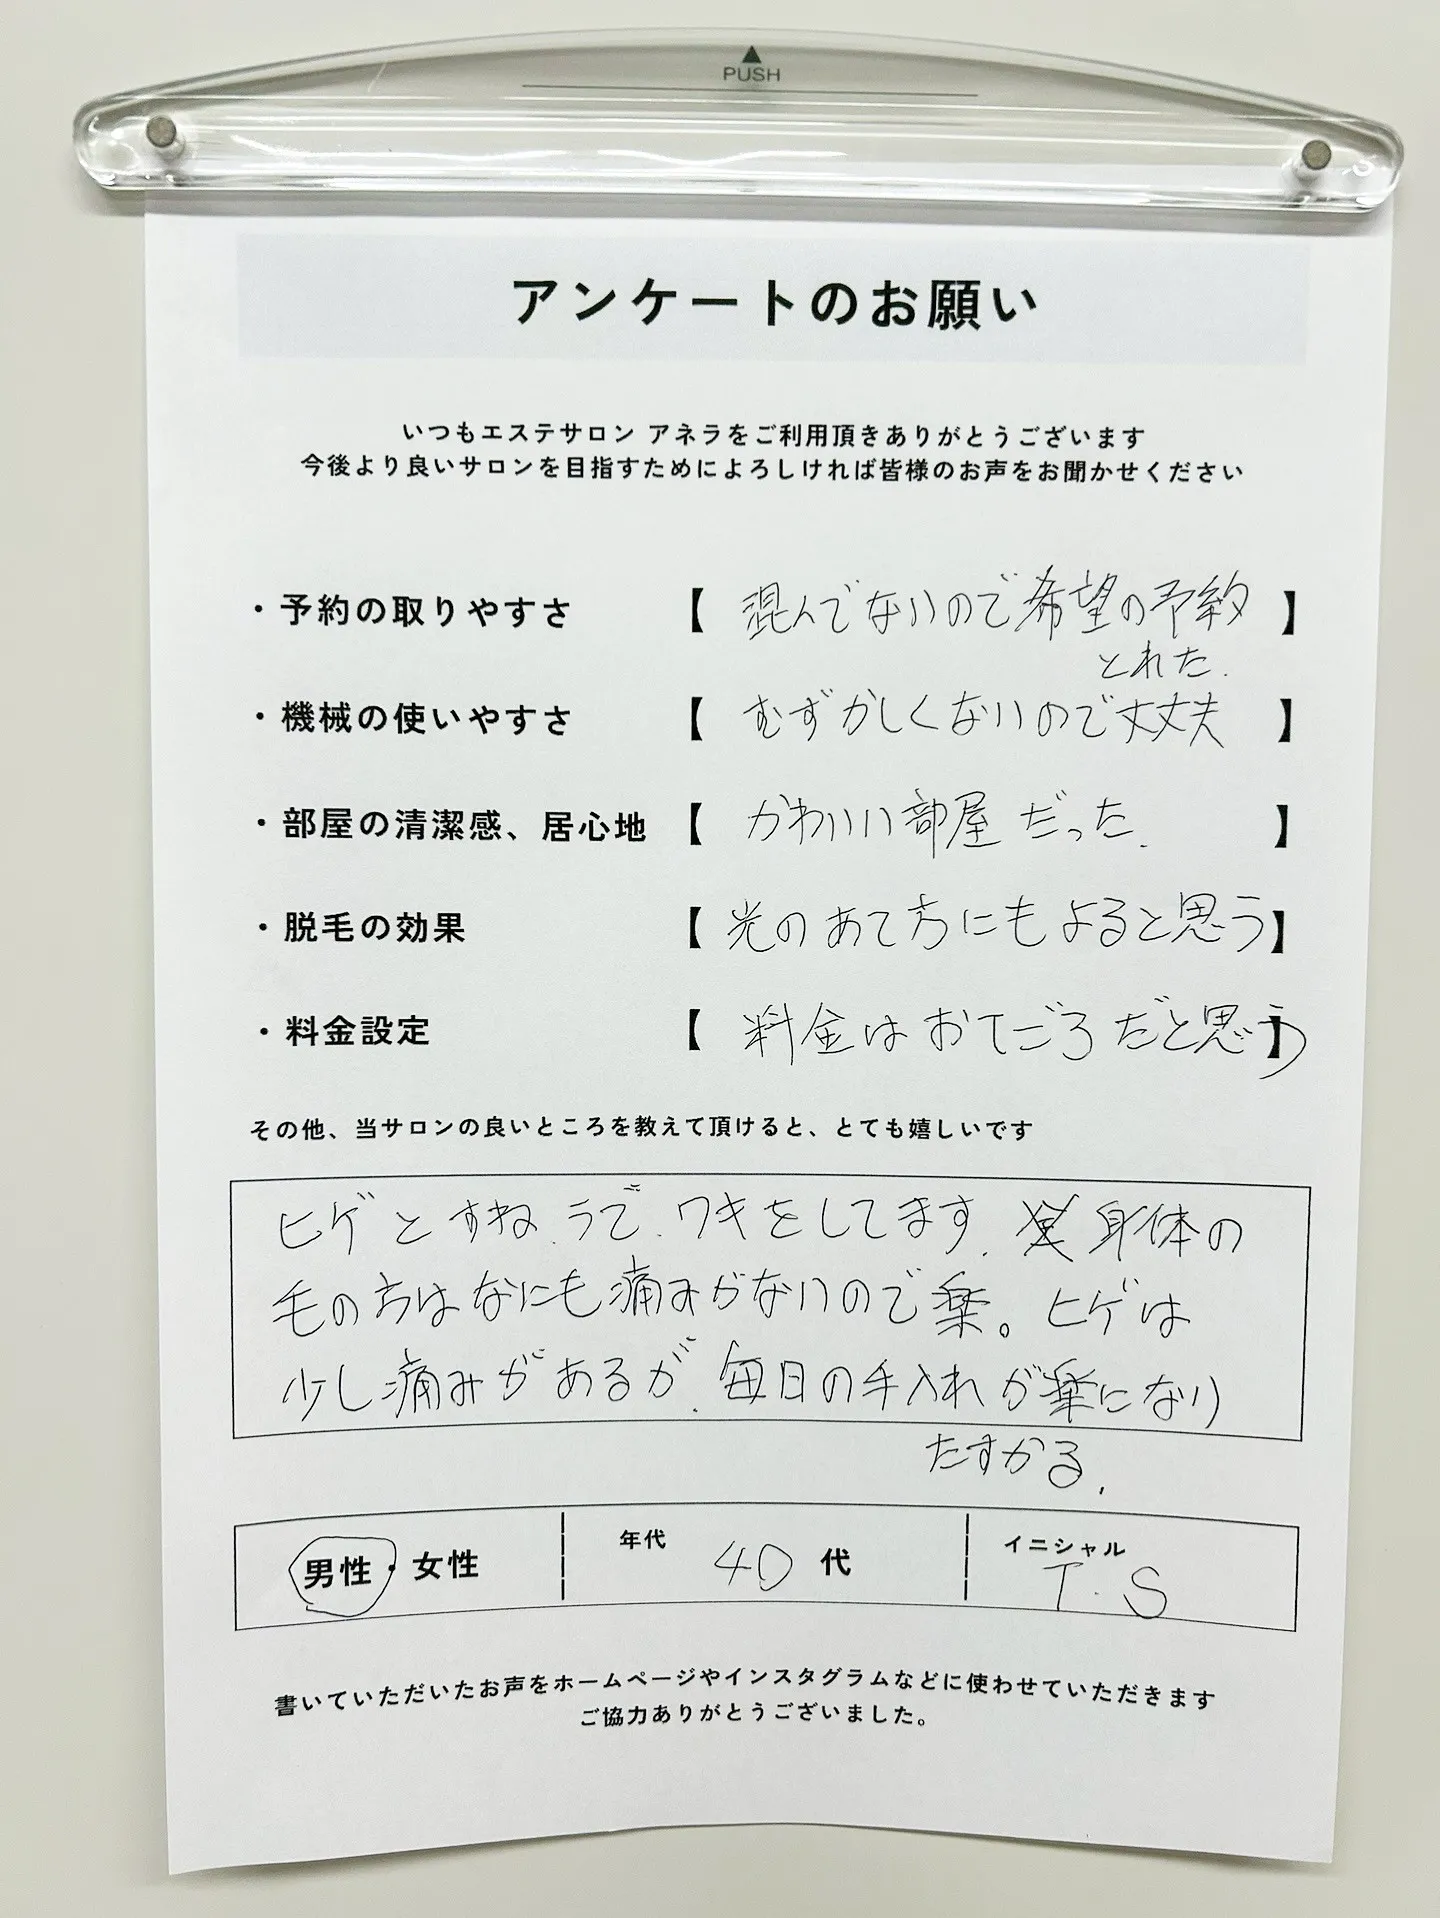 ▲
PUSH
アンケートのお願い
いつもエステサロン アネラをご利用頂きありがとうございます
今後より良いサロンを目指すためによろしければ皆様のお声をお聞かせください
・予約の取りやすさ 【 混んでないので希望の予約 】
とれた.
・機械の使いやすさ 【 むずかしくないので丈丈夫 】
・部屋の清潔感、居心地 【 かわいい部屋だった. 】
・脱毛の効果 【 光のあて方にもよると思う 】
・料金設定 【 料金はおてごろだと思う 】
その他、当サロンの良いところを教えて頂けると、とても嬉しいです
ヒゲとすね.うで.ワキをしてます. 身体の
毛の方はなにも痛みがないので楽。ヒゲは
少し痛みがあるが.毎日の手入れが楽になり
たすかる.
男性・女性 年代 40 代 イニシャル T.S
書いていただいたお声をホームページやインスタグラムなどに使わせていただきます
ご協力ありがとうございました。